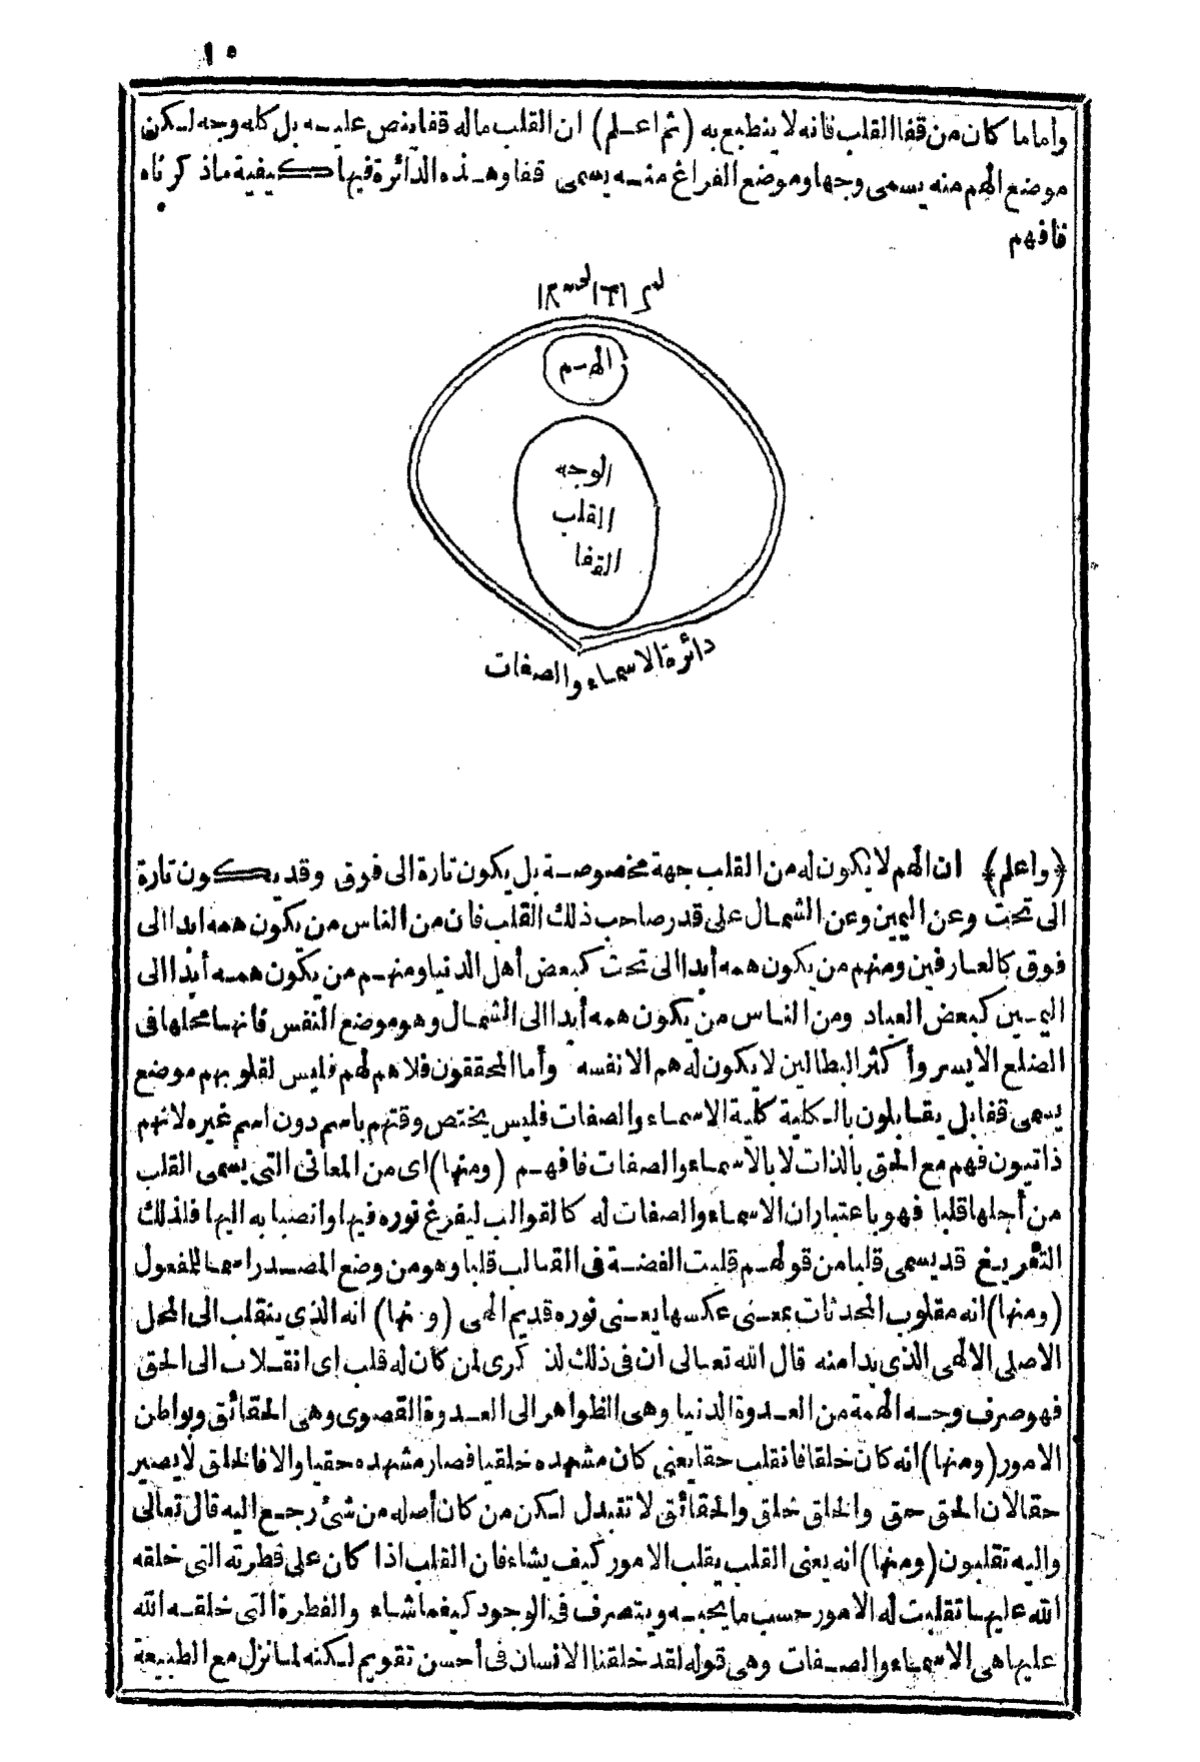 ١٥
وأماما كان من قفا القلب فانه لا ينطبع به (ثم اعلم) ان القلب ماله قفا ينص عليه بل كله وجه لكن
موضع الهم منه يسمى وجها وموضع الفراغ منه يسمى قفا وهذه الدائرة فيها كيفية ماذكرناه
فافهم
الهم
الوجه
القلب
القفا
دائرة الاسماء والصفات
﴿واعلم﴾ ان الهم لا يكون له من القلب جهة مخصوصة بل يكون تارة الى فوق وقد يكون تارة
الى تحت وعن اليمين وعن الشمال على قدر صاحب ذلك القلب فان من الناس من يكون همه ابدا الى
فوق كالعارفين ومنهم من يكون همه أبدا الى تحت كبعض أهل الدنيا ومنهم من يكون همه أبدا الى
اليمين كبعض العباد ومن الناس من يكون همه أبدا الى الشمال وهو موضع النفس فانها محلها فى
الضلع الايسر وأكثر البطالين لا يكون له هم الا نفسه وأما المحققون فلا هم لهم فليس لقلوبهم موضع
يسمى قفا بل يقابلون بالكلية كلية الاسماء والصفات فليس يختص وقتهم باسم دون اسم غيره لانهم
ذاتيون فهم مع الحق بالذات لا بالاسماء والصفات فافهم (ومنها) اى من المعانى التى يسمى القلب
من أجلها قلبا فهو باعتبار ان الاسماء والصفات له كالقوالب ليفرغ نوره فيها وانصبابه اليها فلذلك
التفريغ قد يسمى قلبا من قولهم قلبت الفضة فى القالب قلبا وهو من وضع المصدر اسما للمفعول
(ومنها) انه مقلوب المحدثات بمعنى عكسها يعنى نوره قديم الهى (ومنها) انه الذى ينقلب الى المحل
الاصلى الالهى الذى بدا منه قال الله تعالى ان فى ذلك لذكرى لمن كان له قلب اى انقلاب الى الحق
فهو صرف وجه الهمة من العدوة الدنيا وهى الظواهر الى العدوة القصوى وهى الحقائق وبواطن
الامور (ومنها) انه كان خلقا فانقلب حقا يعنى كان مشهده خلقيا فصار مشهده حقيا والا فالخلق لا يصير
حقا لان الحق حق والخلق خلق والحقائق لا تتبدل لكن من كان أصله من شئ رجع اليه قال تعالى
واليه تقلبون (ومنها) انه يعنى القلب يقلب الامور كيف يشاء فان القلب اذا كان على فطرته التى خلقه
الله عليها تقلبت له الامور حسب ما يحبه ويتصرف فى الوجود كيفما شاء والفطرة التى خلقه الله
عليها هى الاسماء والصفات وهى قوله لقد خلقنا الانسان فى أحسن تقويم لكنه لما نزل مع الطبيعة